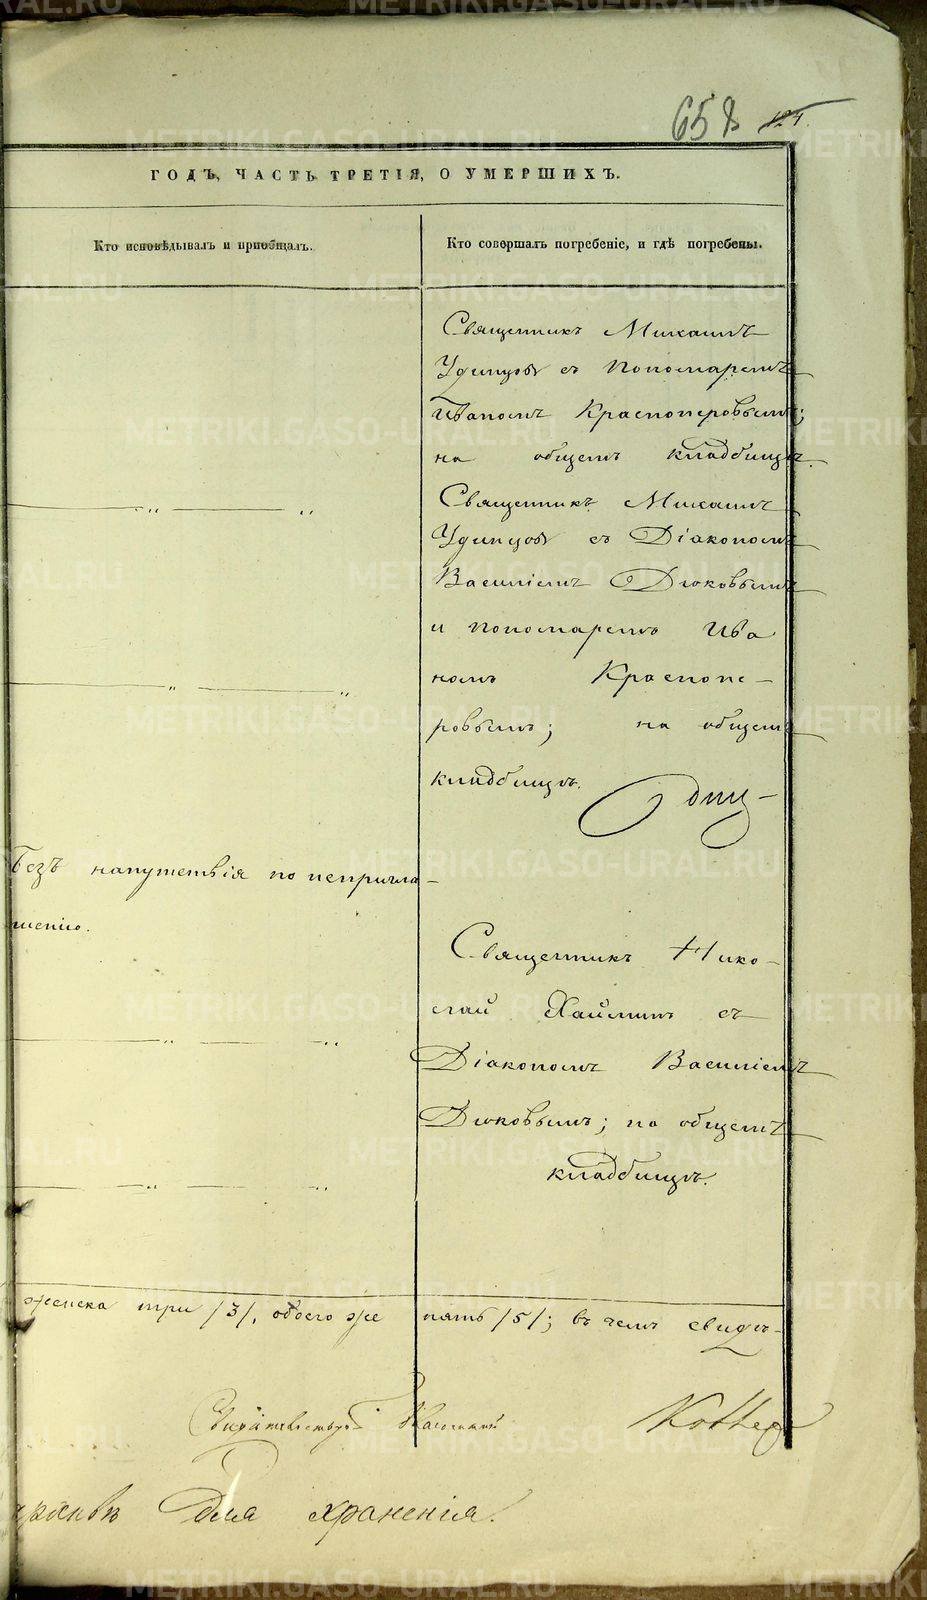 658 124.
ГОДЪ, ЧАСТЬ ТРЕТІЯ, О УМЕРШИХЪ.
Кто исповѣдывалъ и пріобщалъ.
Кто совершалъ погребеніе, и гдѣ погребены.
Священникъ Михаилъ
Удинцовъ съ Пономаремъ
Иваномъ Краснопёровымъ;
на общемъ кладбищѣ.
Священникъ Михаилъ
Удинцовъ съ Діакономъ
Василіемъ Дюковымъ
и пономаремъ Ива
номъ Краснопе-
ровымъ; на общемъ
кладбищѣ.
Безъ напутствія по непригла-
шенію.
Священникъ Нико-
лай съ
Діакономъ Василіемъ
Дюковымъ; на общемъ
кладбищѣ.
женска три /3/, обоего же пять /5/; въ чемъ свидѣ-
для храненія.
METRIKI.GASO-URAL.RU